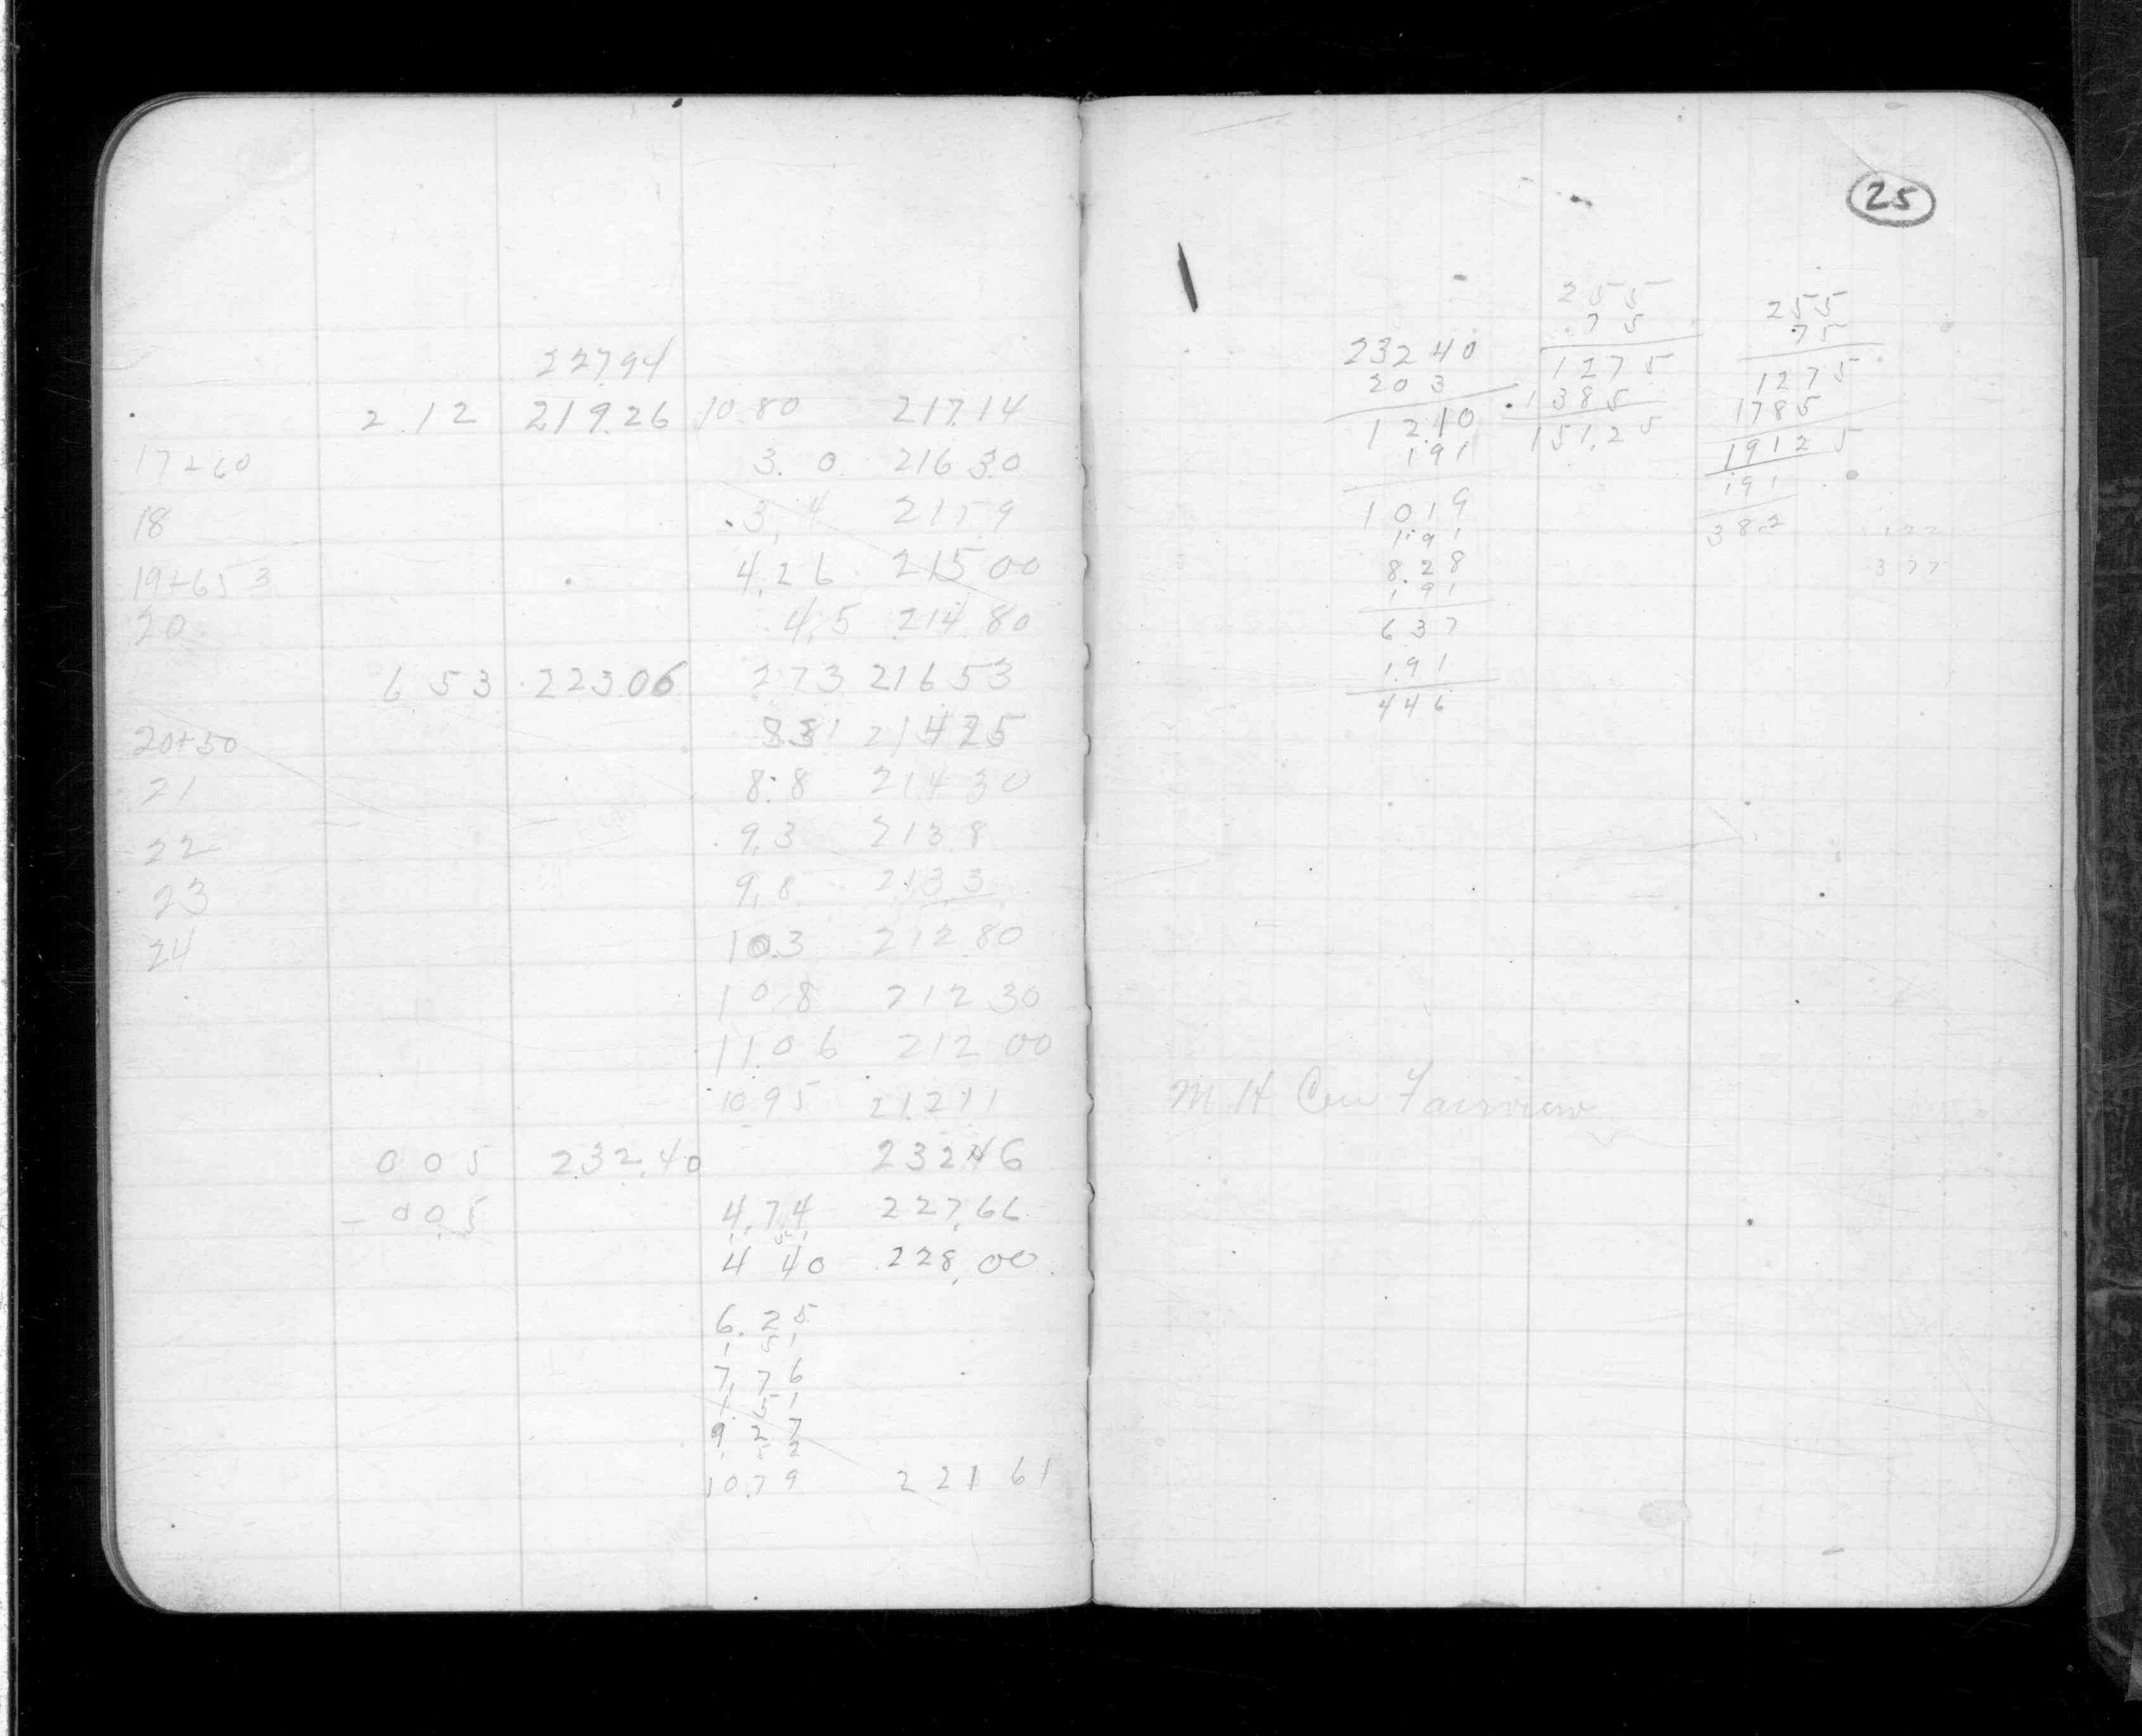 227.94
2.12 219.26 10.80 217.14
17+60 3.0 216 30
18 3.4 215 9
19+65 3 4.26 215 00
20 4.5 214 80
6 53 223.06 2 73 216 53
20+50 214 25
21 8.8 214 30
22 9.3 213 8
23 9.8 213 3
24 10.3 212 80
10.8 212 30
11.06 212 00
10.95 212 11
0 0 5 232.40 232 46
- 0 0.5 4.74 227.66
4 40 228.00
6.25
1 51
7.76
1.51
9 27
1 52
10.79 221 61
25
232 40
20 3
12.10
1 91
10 19
1.91
8.28
1 91
6 37
1.91
4 46
255
.75
1275
1385
151.25
255
.75
1275
1785
19125
191
382
122
377
M H Fairview